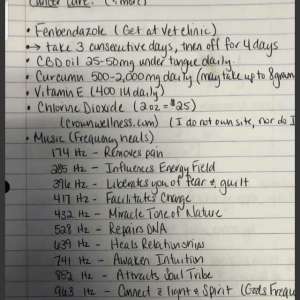 Cancer Care: (& more)
• Fenbendazole (Get at vet clinic)
• → take 3 consecutive days, then off for 4 days
• CBD oil 25-50mg under tongue daily
• Curcumin 500-2,000mg daily (may take up to 8 gram
• Vitamin E (400 IU daily)
• Chlorine Dioxide (2oz = $25)
(crownwellness.com) (I do not own site, nor do I
• Music (Frequency heals)
174 Hz - Removes pain
285 Hz - Influences Energy Field
396 Hz - Liberates you of fear & guilt
417 Hz - Facilitates Change
432 Hz - Miracle Tone of Nature
528 Hz - Repairs DNA
639 Hz - Heals Relationships
741 Hz - Awaken Intuition
852 Hz - Attracts Soul Tribe
963 Hz - Connect c light & Spirit (Gods Frequ